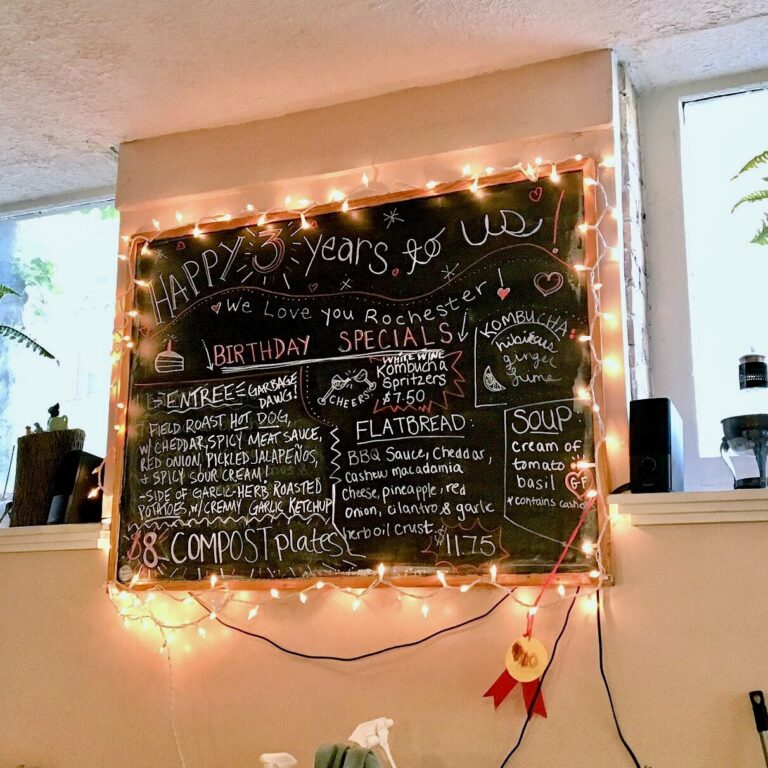 HAPPY 3 years to us!
We Love you Rochester!
BIRTHDAY SPECIALS
ENTREE GARBAGE
DAWG!
FIELD ROAST HOT DOG,
W/ CHEDDAR, SPICY MEAT SAUCE,
RED ONION, PICKLED JALAPEÑOS,
& SPICY SOUR CREAM!
-SIDE OF GARLIC-HERB ROASTED
POTATOES, W/ CREAMY GARLIC KETCHUP
$8 COMPOST plates
CHEERS!
WHITE WINE
Kombucha
Spritzers
$7.50
FLATBREAD:
BBQ Sauce, Cheddar,
cashew macadamia
cheese, pineapple, red
onion, cilantro & garlic
herb oil crust.
$11.75
KOMBUCHA:
hibiscus
ginger
& lime
SOUP
cream of
tomato
basil
GF
* contains cashew